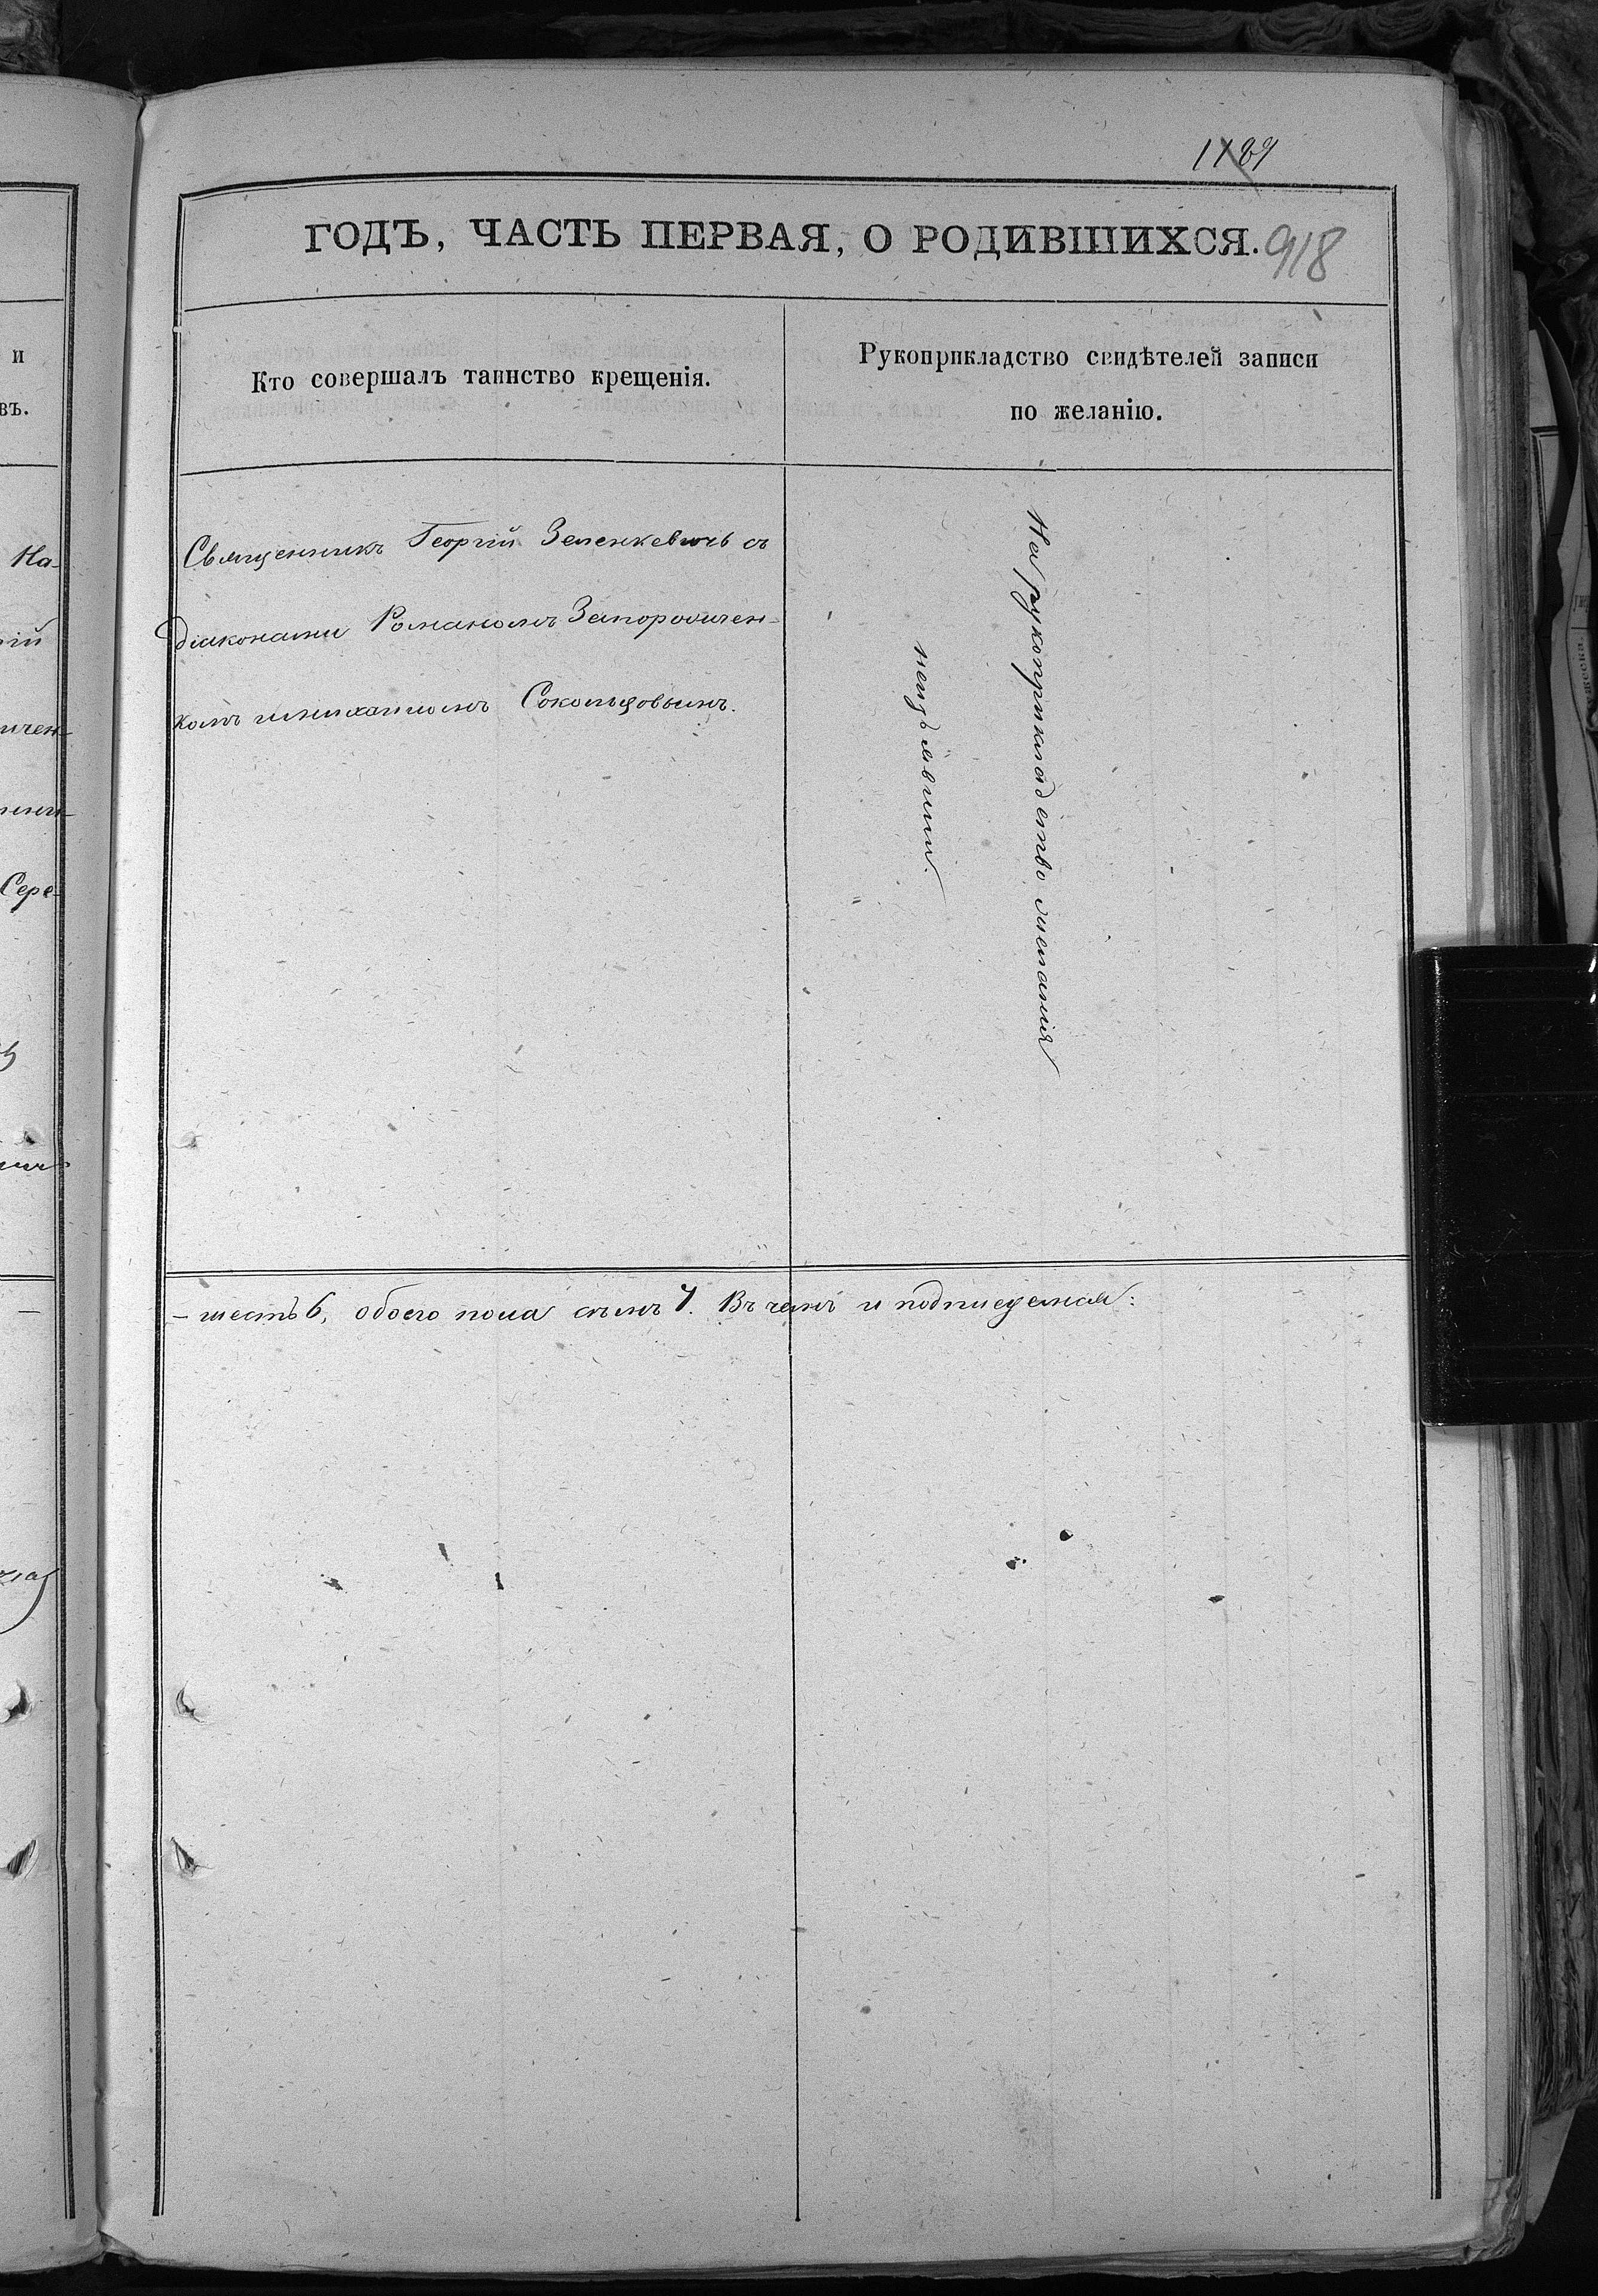 и
въ.
На-
рій
ичен-
Сере-
1189
ГОДЪ, ЧАСТЬ ПЕРВАЯ, О РОДИВШИХСЯ.
918
Кто совершалъ таинство крещенія.
Рукоприкладство свидѣтелей записи
по желанію.
Священникъ Георгій Зеленкевичъ съ
діаконами Романомъ Запорожчен-
комъ и Михаиломъ Сокольцовымъ.
На рукоприкладство желанія
неизъявили.
– шесть 6, обоего пола семь 7. Въ чемъ и подписуемся: